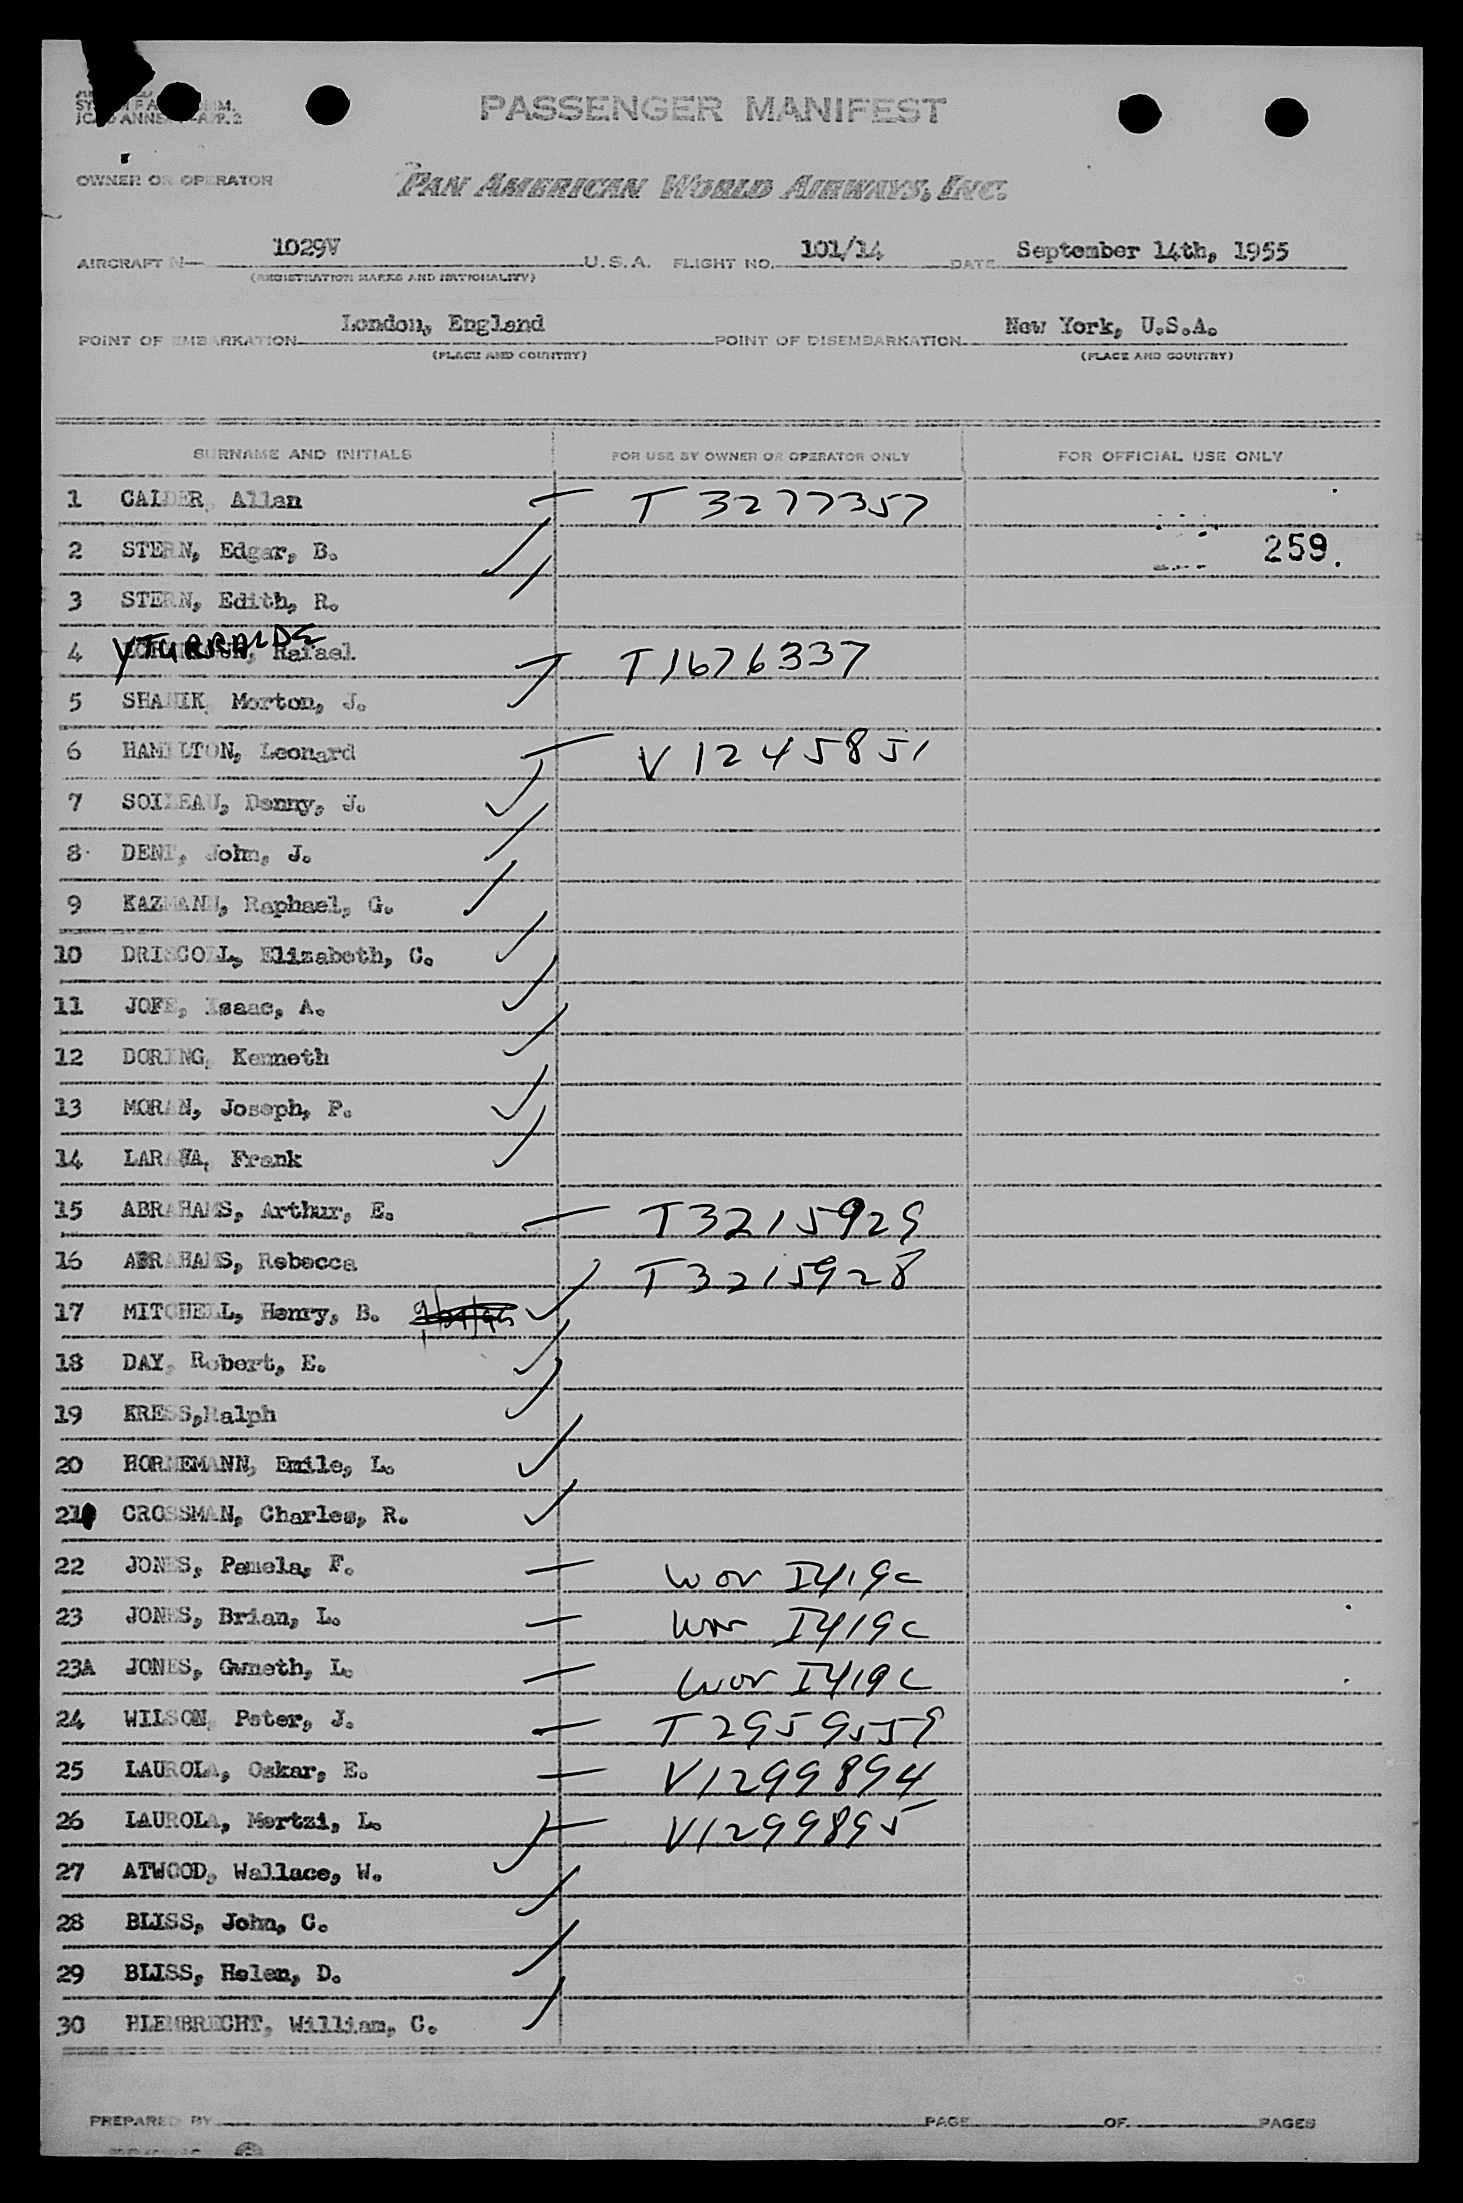 PASSENGER MANIFEST
ICAO ANNEX 9-APP. 2
OWNER OR OPERATOR PAN AMERICAN WORLD AIRWAYS, INC.
AIRCRAFT N— 1029V U.S.A. FLIGHT NO. 101/14 DATE September 14th, 1955
(REGISTRATION MARKS AND NATIONALITY)
POINT OF EMBARKATION London, England POINT OF DISEMBARKATION New York, U.S.A.
(PLACE AND COUNTRY) (PLACE AND COUNTRY)
SURNAME AND INITIALS FOR USE BY OWNER OR OPERATOR ONLY FOR OFFICIAL USE ONLY
1 CALDER, Allan T 3277357
2 STERN, Edgar, B. 259.
3 STERN, Edith, R.
4 YTURRALDE Rafael T1676337
5 SHANIK, Morton, J.
6 HAMILTON, Leonard V 1245851
7 SOILEAU, Danny, J.
8 DENT, John, J.
9 KAZMANN, Raphael, G.
10 DRISCOLL, Elizabeth, C.
11 JOFE, Isaac, A.
12 DORING, Kenneth
13 MORAN, Joseph, P.
14 LARANA, Frank
15 ABRAHAMS, Arthur, E. T3215929
16 ABRAHAMS, Rebecca T3215928
17 MITCHELL, Henry, B.
18 DAY, Robert, E.
19 KRESS,Ralph
20 HORNEMANN, Emile, L.
21 CROSSMAN, Charles, R.
22 JONES, Pamela, F. wor I419c
23 JONES, Brian, L. wor I419c
23A JONES, Gwneth, L. wor I419c
24 WILSON, Peter, J. T2959559
25 LAUROLA, Oskar, E. V1299894
26 LAUROLA, Mertzi, L. V1299895
27 ATWOOD, Wallace, W.
28 BLISS, John, C.
29 BLISS, Helen, D.
30 HLEMBRECHT, William, C.
PREPARED BY PAGE OF PAGES